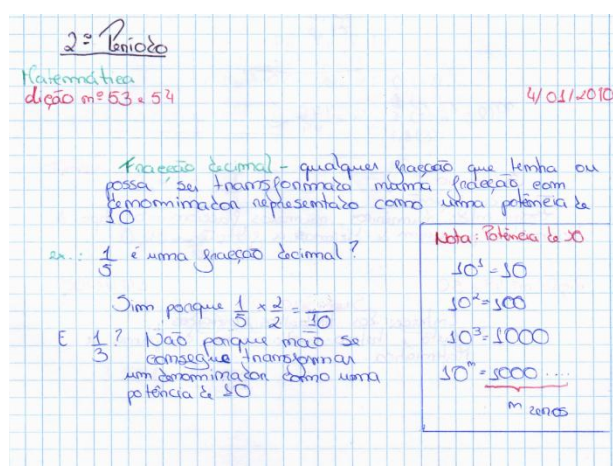 2º Período
Matemática
Lição nº 53 e 54
4/01/2010
Fracção decimal - qualquer fracção que tenha ou
possa ser transformada numa fracção com
denominador representado como uma potência de
10
ex.: 1/5 é uma fracção decimal?
Sim porque 1/5 x 2/2 = /10
E 1/3? Não porque não se
consegue transformar
um denominador como uma
potência de 10
Nota: Potência de 10
10¹=10
10²=100
10³=1000
10ⁿ=1000....
n zeros